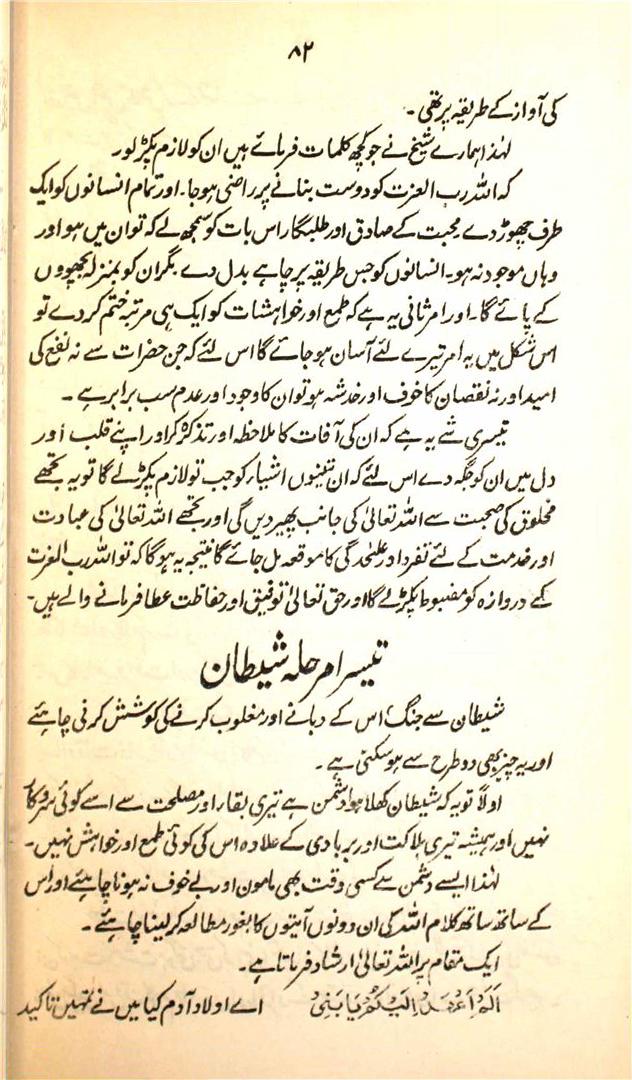 ۸۲
کی آواز کے طریقہ پر تھی۔
لہٰذا ہمارے شیخ نے جو کچھ کلمات فرمائے ہیں ان کو لازم پکڑ لو
کہ اللہ رب العزت کو دوست بنانے پر راضی ہوجا۔ اور تمام انسانوں کو ایک
طرف چھوڑ دے محبت کے صادق اور طلبگار اس بات کو سمجھ لے کہ تو ان میں ہو اور
وہاں موجود نہ ہو۔ انسانوں کو جس طریقہ پر چاہے بدل دے۔ مگر ان کو بمنزلہ بچھوؤں
کے پائے گا۔ اور امر ثانی یہ ہے کہ طمع اور خواہشات کو ایک ہی مرتبہ ختم کر دے تو
اس شکل میں یہ امر تیرے لئے آسان ہو جائے گا اس لئے کہ جن حضرات سے نہ نفع کی
امید اور نہ نقصان کا خوف اور خدشہ ہو تو ان کا وجود اور عدم سب برابر ہے۔
تیسری شے یہ ہے کہ ان کی آفات کا ملاحظہ اور تذکر کر اور اپنے قلب اور
دل میں ان کو جگہ دے اس لئے کہ ان تینوں اشیاء کو جب تو لازم پکڑ لے گا تو یہ تجھے
مخلوق کی صحبت سے اللہ تعالیٰ کی جانب پھیر دیں گی اور تجھے اللہ تعالیٰ کی عبادت
اور خدمت کے لئے تفرد اور علیٰحدگی کا موقعہ مل جائے گا نتیجہ یہ ہوگا کہ تو اللہ رب العزت
کے دروازہ کو مضبوط پکڑ لے گا اور حق تعالیٰ توفیق اور حفاظت عطا فرمانے والے ہیں۔
تیسرا مرحلہ شیطان
شیطان سے جنگ، اس کے دبانے اور مغلوب کرنے کی کوشش کرنی چاہئے
اور یہ چیز بھی دو طرح سے ہو سکتی ہے۔
اولاً تو یہ کہ شیطان کھلا ہوا دشمن ہے تیری بقاء اور مصلحت سے اسے کوئی سروکار
نہیں اور ہمیشہ تیری ہلاکت اور بربادی کے علاوہ اس کی کوئی طمع اور خواہش نہیں۔
لہٰذا ایسے دشمن سے کسی وقت بھی مامون اور بے خوف نہ ہونا چاہئے اور اس
کے ساتھ ساتھ کلام اللہ کی ان دونوں آیتوں کا بغور مطالعہ کر لینا چاہئے۔
ایک مقام پر اللہ تعالیٰ ارشاد فرماتا ہے۔
اَلَمْ اَعْهَدْ اِلَيْكُمْ يَا بَنِيْ اے اولاد آدم کیا میں نے تمہیں تاکید